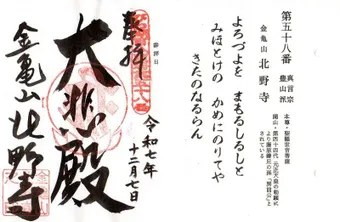 第五十八番
真言宗
豊山派
金亀山 北野寺
本尊・聖観世音菩薩
よろづよを まもるしるしと
みほとけの かめにのりてや
きたのなるらん
奉拝
大悲殿
令和七年
十二月七日
金亀山北野寺